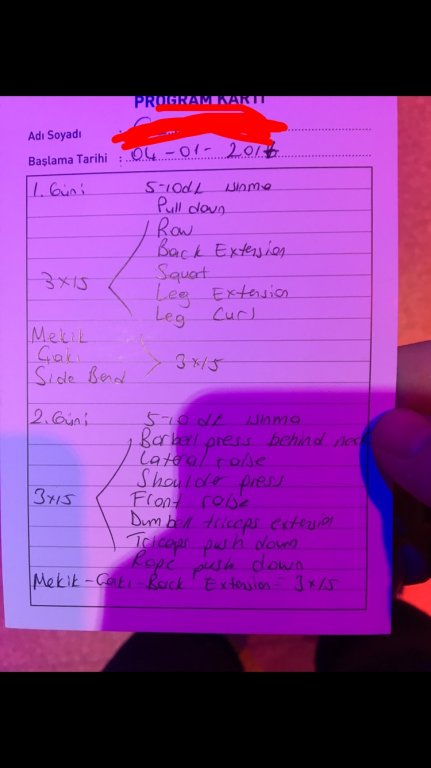 PROGRAM KARTI
Adı Soyadı :
Başlama Tarihi : 04-01-201
1. Günü 5-10dk ısınma
Pull down
Row
Back Extension
Squat
3x15 Leg Extension
Leg Curl
Mekik
Çakı 3x15
Side Bend
2. Günü 5-10 dk ısınma
Barbell press behind neck
Lateral raise
Shoulder press
3x15 Front raise
Dumbell triceps extension
Triceps push down
Rope push down
Mekik-Çakı-Back Extension = 3x15